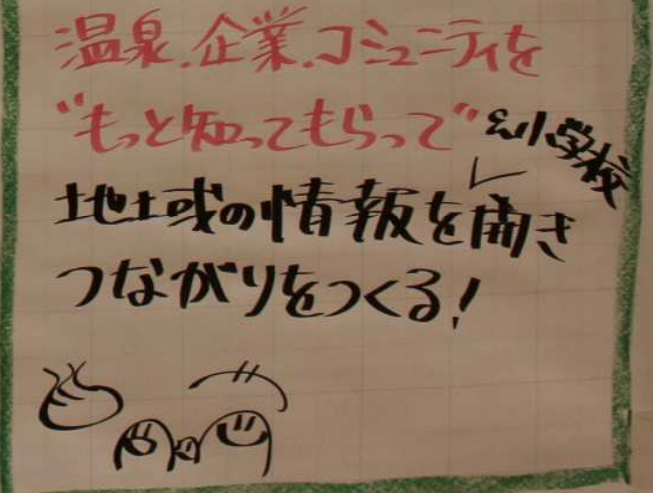 温泉.企業.コミュニティを
"もっと知ってもらって"
小学校
地域の情報を開き
つながりをつくる!